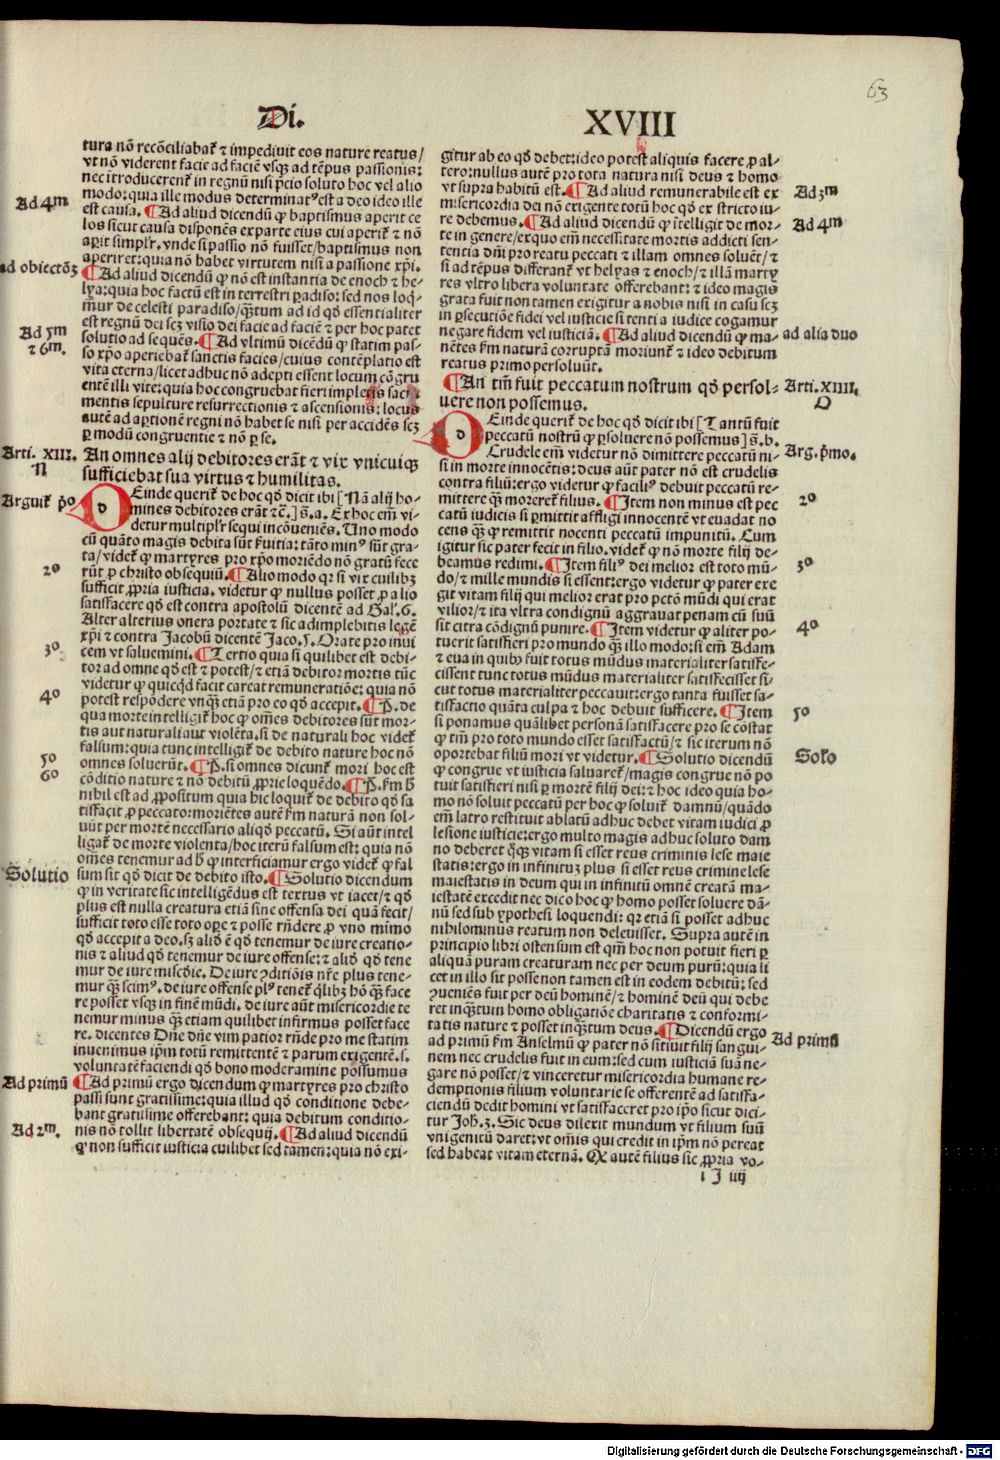 63
Di. XVIII
tura nō recōciliabat̄ ⁊ impedivit eos nature reatus/
vt nō viderent facie ad faciē vsq̨ ad tēpus passionis:
nec itroducerent̄ in regnū nisi p̄cio soluto hoc vel alio
modo: quia ille modus determinatꝰ est a deo ideo ille
Ad 4m
est causa. ¶Ad aliud dicendū ꝙ baptismus aperit ce
los sicut causa disponēs ex parte eius cui aperit̄ ⁊ nō
aꝑit simplr̄. vnde si passio nō fuisset/baptismus non
aperiret: quia nō habet virtutem nisi a passione xp̄i.
ad obiectōꝫ
¶Ad aliud dicendū ꝙ nō est instantia de enoch ⁊ he-
lya: quia hoc factū est in terrestri ꝑadiso: sed nos loq̄-
mur de celesti paradiso/q̄ntum ad id qđ essentialiter
est regnū dei scꝫ visio dei facie ad faciē ⁊ per hoc patet
Ad 5m
⁊ 6m.
solutio ad sequēs. ¶Ad vltimū dicendū ꝙ statim pas-
so xp̄o aperiebat̄ sanctis facies/cuius contēplatio est
vita eterna/licet adhuc nō adepti essent locum cō gru
entē illi vite: quia hoc congruebat fieri impletis sacra
mentis sepulture resurrectionis ⁊ ascensionis: locus
autē ad aptionē regni nō habet se nisi per accidēs scꝫ
ꝑ modū congruentie ⁊ nō ꝑ se.
Arti. XIII.
N
An omnes alij debitores erāt ⁊ vix vnicuiq̨
sufficiebat sua virtus ⁊ humilitas.
Arguit̄ p̄o
DEinde querit̄ de hoc qđ dicit ibi [Nā alij ho-
mines debitores erāt ⁊c̄.] §. a. Ex hoc em̄ vi-
detur multiplr̄ sequi incōueniēs. Uno modo
cū quāto magis debita sūt ẜuitia: tāto minꝰ sūt gra-
ta/videt̄ ꝙ martyres pro xp̄o moriēdo nō gratū fece
2o
rūt ꝓ christo obsequiū. ¶Alio modo qr si vix cuilibꝫ
sufficit ꝓpria iusticia. videtur ꝙ nullus posset ꝓ alio
satisfacere qđ est contra apostolū dicentē ad Gal̄. 6.
Alter alterius onera portate ⁊ sic adimplebitis legē
xp̄i ⁊ contra Jacobū dicentē Jaco. 5. Orate pro inui
3o
cem vt saluemini. ¶Tertio quia si quilibet est debi-
tor ad omne qđ est ⁊ potest/⁊ etiā debitor mortis tūc
videtur ꝙ quicq̄d facit careat remuneratiōe: quia nō
4o
potest respōdere vnq̄ꝫ etiā pro eo qđ accepit. ¶P. de
qua morte intelligit̄ hoc ꝙ om̄es debitores sūt mor-
tis aut naturali aut violēta. si de naturali hoc videt̄
falsum: quia tunc intelligit̄ de debito nature hoc nō
5o
omnes soluerūt. ¶P. si omnes dicunt̄ mori hoc est
6o
cōditio nature ⁊ nō debitū ꝓprie loquēdo. ¶P. ẜm ħ
nihil est ad ꝓpositum quia hic loquit̄ de debito qđ sa
tisfacit ꝓ peccato: moriētes autē ẜm naturā non sol-
uūt per mortē necessario aliqđ peccatū. Si aūt intel
ligat̄ de morte violenta/hoc iterū falsum est: quia nō
om̄es tenemur ad ħ ꝙ interficiamur ergo videt̄ ꝙ fal
Solutio
sum sit qđ dicit de debito isto. ¶Solutio dicendum
ꝙ in veritate sic intelligēdus est textus vt iacet/⁊ qđ
plus est nulla creatura etiā sine offensa dei quā fecit/
sufficit toto esse toto oꝑe ⁊ posse rn̄dere ꝓ vno mimo
qđ accepit a deo. sꝫ aliđ ē qđ tenemur de iure creatio-
nis ⁊ aliud qđ tenemur de iure offense: ⁊ aliđ qđ tene
mur de iure miscōie. De iure ꝯditiōis nr̄e plus tene-
mur q̄ꝫ scimꝰ. de iure offense plꝰ tenet̄ q̄libꝫ hō q̄ꝫ face
re posset vsq̨ in finē mūdi. de iure aūt misericordie te
nemur minus q̄ꝫ etiam quilibet infirmus posset face
re. dicentes Dn̄e dn̄e vim patior rn̄de pro me statim
inuenimus ip̄m totū remittentē ⁊ parum exigentē. s.
voluntatē faciendi qđ bono moderamine possumus
Ad primū
¶Ad primū ergo dicendum ꝙ martyres pro christo
passi sunt gratissime: quia illud qđ conditione debe-
bant gratissime offerebant: quia debitum conditio-
Ad 2m.
nis nō tollit libertatē obsequij. ¶Ad aliud dicendū
ꝙ non sufficit iusticia cuilibet sed tamen: quia nō exi-
gitur ab eo qđ debet: ideo potest aliquis facere ꝓ al-
tero: nullus autē pro tota natura nisi deus ⁊ homo
Ad 3m
vt supra habitū est. ¶Ad aliud remunerabile est ex
misericordia dei nō exigente totū hoc qđ ex stricto iu-
Ad 4m
re debemus. ¶Ad aliud dicendū ꝙ ītelligit de mor-
te in genere/ex quo em̄ necessitate mortis addicti sen-
tentia dn̄i pro reatu peccati ⁊ illam omnes soluēt/⁊
si ad tēpus differant̄ vt helyas ⁊ enoch/⁊ illā marty
res vltro libera voluntate offerebant: ⁊ ideo magis
grata fuit non tamen exigitur a nobis nisi in casu scꝫ
in ꝑsecutiōe fidei vel iusticie si tenti a iudice cogamur
ad alia duo
negare fidem vel iusticiā. ¶Ad aliud dicendū ꝙ ma-
nētes ẜm naturā corruptā moriunt̄ ⁊ ideo debitum
reatus primo persoluūt.
Arti. XIIII.
O
¶An tm̄ fuit peccatum nostrum qđ persol-
uere non possemus.
DEinde querit̄ de hoc qđ dicit ibi [Tantū fuit
peccatū nostrū ꝙ ꝑsoluere nō possemus] §. b.
Arg. p̄mo.
Crudele em̄ videtur nō dimittere peccatū ni-
si in morte innocētis: deus aūt pater nō est crudelis
contra filiū: ergo videtur ꝙ facilꝰ debuit peccatū re-
2o
mittere q̄ꝫ moreret̄ filius. ¶Item non minus est pec
catū iudicis si ꝑmittit affligi innocentē vt euadat no
cens q̄ꝫ ꝙ remittit nocenti peccatū impunitū. Cum
igitur sic pater fecit in filio. videt̄ ꝙ nō morte filij de-
3o
beamus redimi. ¶Item filiꝰ dei melior est toto mū-
do/⁊ mille mundis si essent: ergo videtur ꝙ pater exe
git vitam filij qui melior erat pro pctō mūdi qui erat
vilior/⁊ ita vltra condignū aggrauat penam cū suū
4o
sit citra cōdignū punire. ¶Item videtur ꝙ aliter po-
tuerit satisfieri pro mundo q̄ꝫ illo modo: si em̄ Adam
⁊ eua in quibꝰ fuit totus mūdus materialiter satisfe-
cissent tunc totus mūdus materialiter satisfecisset si-
cut totus materialiter peccauit: ergo tanta fuisset sa-
5o
tisfactio quāta culpa ⁊ hoc debuit sufficere. ¶Item
si ponamus quālibet personā satisfacere pro se cōstat
ꝙ tm̄ pro toto mundo esset satisfactū/⁊ sic iterum nō
Solo̅
oportebat filiū mori vt videtur. ¶Solutio dicendū
ꝙ congrue vt iusticia saluaret̄/magis congrue nō po
tuit satisfieri nisi ꝑ mortē filij dei: ⁊ hoc ideo quia ho-
mo nō soluit peccatū per hoc ꝙ soluit̄ damnū/quādo
em̄ latro restituit ablatū adhuc debet vitam iudici ꝓ
lesione iusticie: ergo multo magis adhuc soluto dam
no deberet q̄sq̄ vitam si esset reus criminis lese maie
statis: ergo in infinituꝫ plus si esset reus crimine lese
maiestatis in deum qui in infinitū omnē creatā ma-
iestatē excedit nec dico hoc ꝙ homo posset soluere dā-
nū sed sub ypothesi loquendi: qr etiā si posset adhuc
nihilominus reatum non deleuisset. Supra autē in
principio libri ostensum est qm̄ hoc non potuit fieri ꝑ
aliquā puram creaturam nec per deum purū: quia li
cet in illo sit posse non tamen est in eodem debitū: sed
ꝯueniēs fuit per deū hominē/⁊ hominē deū qui debe
ret inq̄ꝫtum homo obligatiōe charitatis ⁊ conformi-
tatis nature ⁊ posset inq̄ꝫtum deus. ¶Dicendū ergo
Ad primū
ad primū ẜm Anselmū ꝙ pater nō sitiuit filij sangui-
nem nec crudelis fuit in eum: sed cum iusticiā suā ne-
gare nō posset/⁊ vinceretur misericordia humane re-
demptionis filium voluntarie se offerentē ad satisfa-
ciendū dedit homini vt satisfaceret pro ip̄o sicut dici-
tur Joh. 3. Sic deus dilexit mundum vt filium suū
vnigenitū daret: vt om̄is qui credit in ip̄m nō pereat
sed habeat vitam eternā. Ex autē filius sic ꝓpria vo-
i J iiij
Digitalisierung gefördert durch die Deutsche Forschungsgemeinschaft - DFG